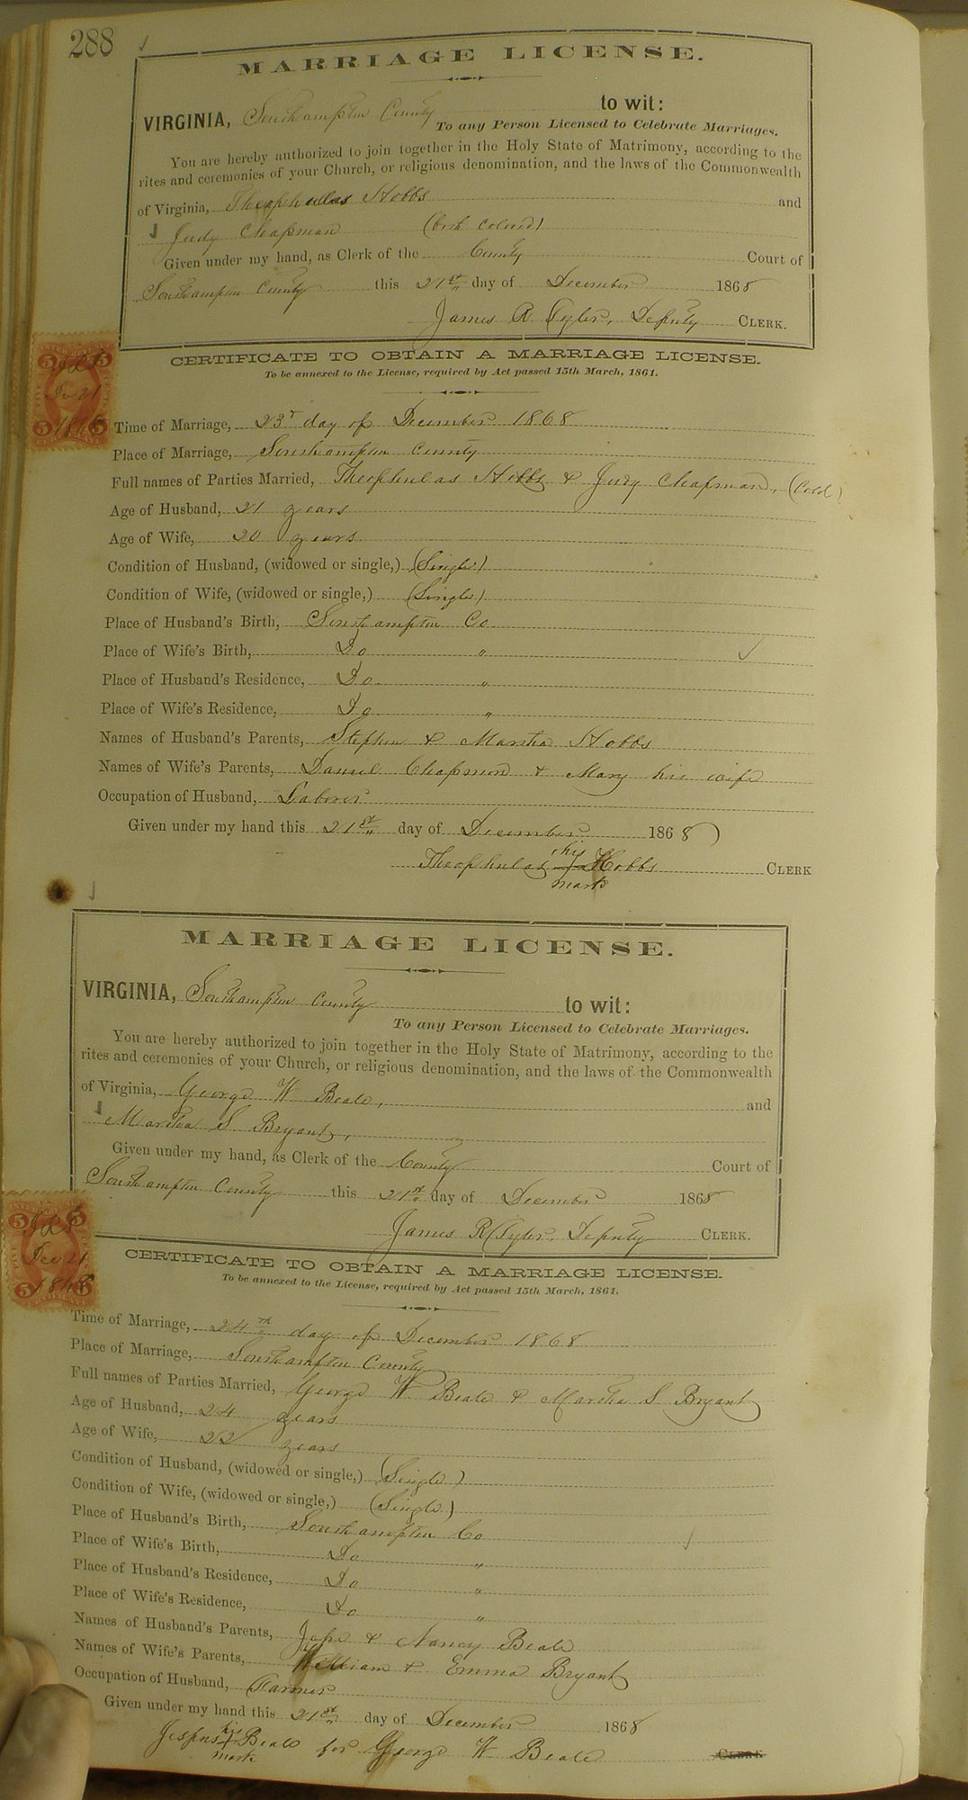 288
MARRIAGE LICENSE.
VIRGINIA, Southampton County to wit:
To any Person Licensed to Celebrate Marriages.
You are hereby authorized to join together in the Holy State of Matrimony, according to the
rites and ceremonies of your Church, or religious denomination, and the laws of the Commonwealth
of Virginia, Theophulas Hobbs and
Judy Chapman (both colored)
Given under my hand, as Clerk of the County Court of
Southampton County this 21st day of December 1868
James R Tyler, Deputy CLERK.
CERTIFICATE TO OBTAIN A MARRIAGE LICENSE.
To be annexed to the License, required by Act passed 15th March, 1861.
5 5
Dec 21
1868
5 5
Time of Marriage, 23d day of December 1868
Place of Marriage, Southampton County
Full names of Parties Married, Theophulas Hobbs & Judy Chapman, (Cold)
Age of Husband, 21 years
Age of Wife, 20 years
Condition of Husband, (widowed or single,) (Single)
Condition of Wife, (widowed or single,) (Single)
Place of Husband's Birth, Southampton Co
Place of Wife's Birth, Do "
Place of Husband's Residence, Do "
Place of Wife's Residence, Do "
Names of Husband's Parents, Stephen & Martha Hobbs
Names of Wife's Parents, Daniel Chapman & Mary his wife
Occupation of Husband, Laborer
Given under my hand this 21st day of December 1868
Theophulas his Hobbs CLERK
mark
MARRIAGE LICENSE.
VIRGINIA, Southampton County to wit:
To any Person Licensed to Celebrate Marriages.
You are hereby authorized to join together in the Holy State of Matrimony, according to the
rites and ceremonies of your Church, or religious denomination, and the laws of the Commonwealth
of Virginia, George W Beale, and
Martha S Bryant,
Given under my hand, as Clerk of the County Court of
Southampton County this 21st day of December 1868
James R Tyler, Deputy CLERK.
CERTIFICATE TO OBTAIN A MARRIAGE LICENSE.
To be annexed to the License, required by Act passed 15th March, 1861.
5 5
Dec 21
5 1868 5
Time of Marriage, 24th day of December 1868
Place of Marriage, Southampton County
Full names of Parties Married, George W Beale & Martha S Bryant
Age of Husband, 24 years
Age of Wife, 22 years
Condition of Husband, (widowed or single,) (Single)
Condition of Wife, (widowed or single,) (Single)
Place of Husband's Birth, Southampton Co
Place of Wife's Birth, Do "
Place of Husband's Residence, Do "
Place of Wife's Residence, Do "
Names of Husband's Parents, & Nancy Beale
Names of Wife's Parents, William & Emma Bryant
Occupation of Husband, Farmer
Given under my hand this 21st day of December 1868
his Beale for George W Beale CLERK
mark